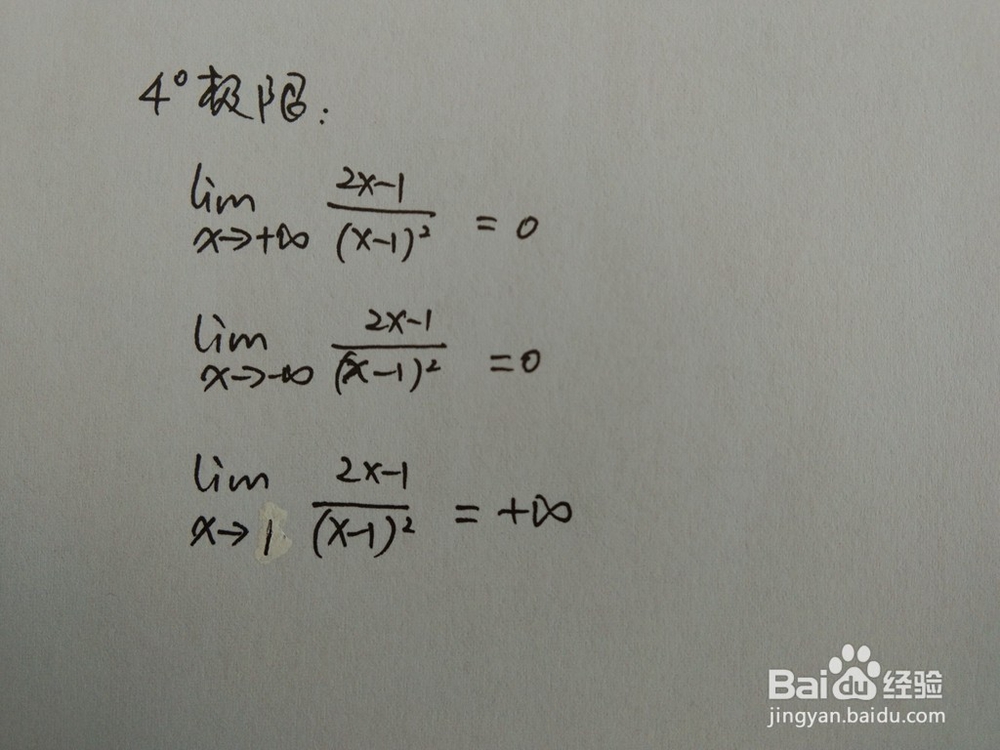 4° 极限:
lim x→+∞ (2x-1)/(x-1)² = 0
lim x→-∞ (2x-1)/(x-1)² = 0
lim x→1 (2x-1)/(x-1)² = +∞
Baidu 经验
jingyan.baidu.com